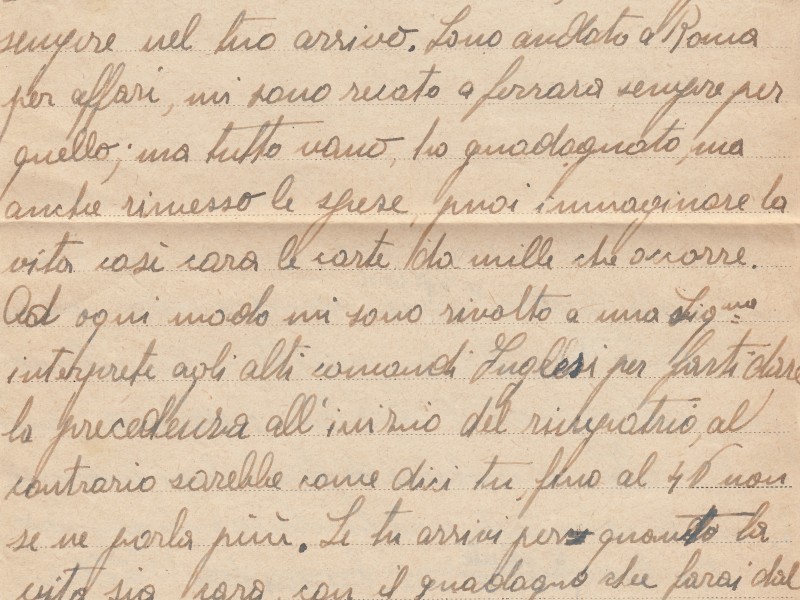 sempre nel tuo arrivo. Sono andato a Roma
per affari, mi sono recato a ferrara sempre per
quello; ma tutto vano, ho guadagnato, ma
anche rimesso le spese, puoi immaginare la
vita così cara le carte da mille che occorre.
Ad ogni modo mi sono rivolto a una Sig.na
interprete agli alti comandi Inglesi per farti dare
la precedenza all'inizio del rimpatrio, al
contrario sarebbe come dici tu, fino al 46 non
se ne parla più. Se tu arrivi per quanto la
vita sia cara, con il guadagno che farai dal